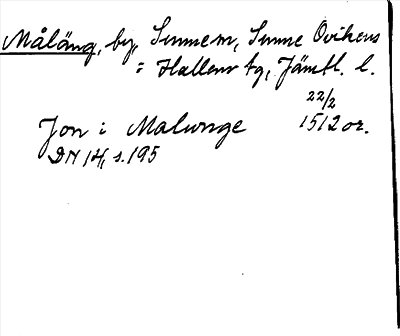 Måläng, by, Sunne sn, Sunne Ovikens
i Hallens tg, Jämtl. l.
22/2
Jon i Malunge 1512 or.
DN 14, s. 195